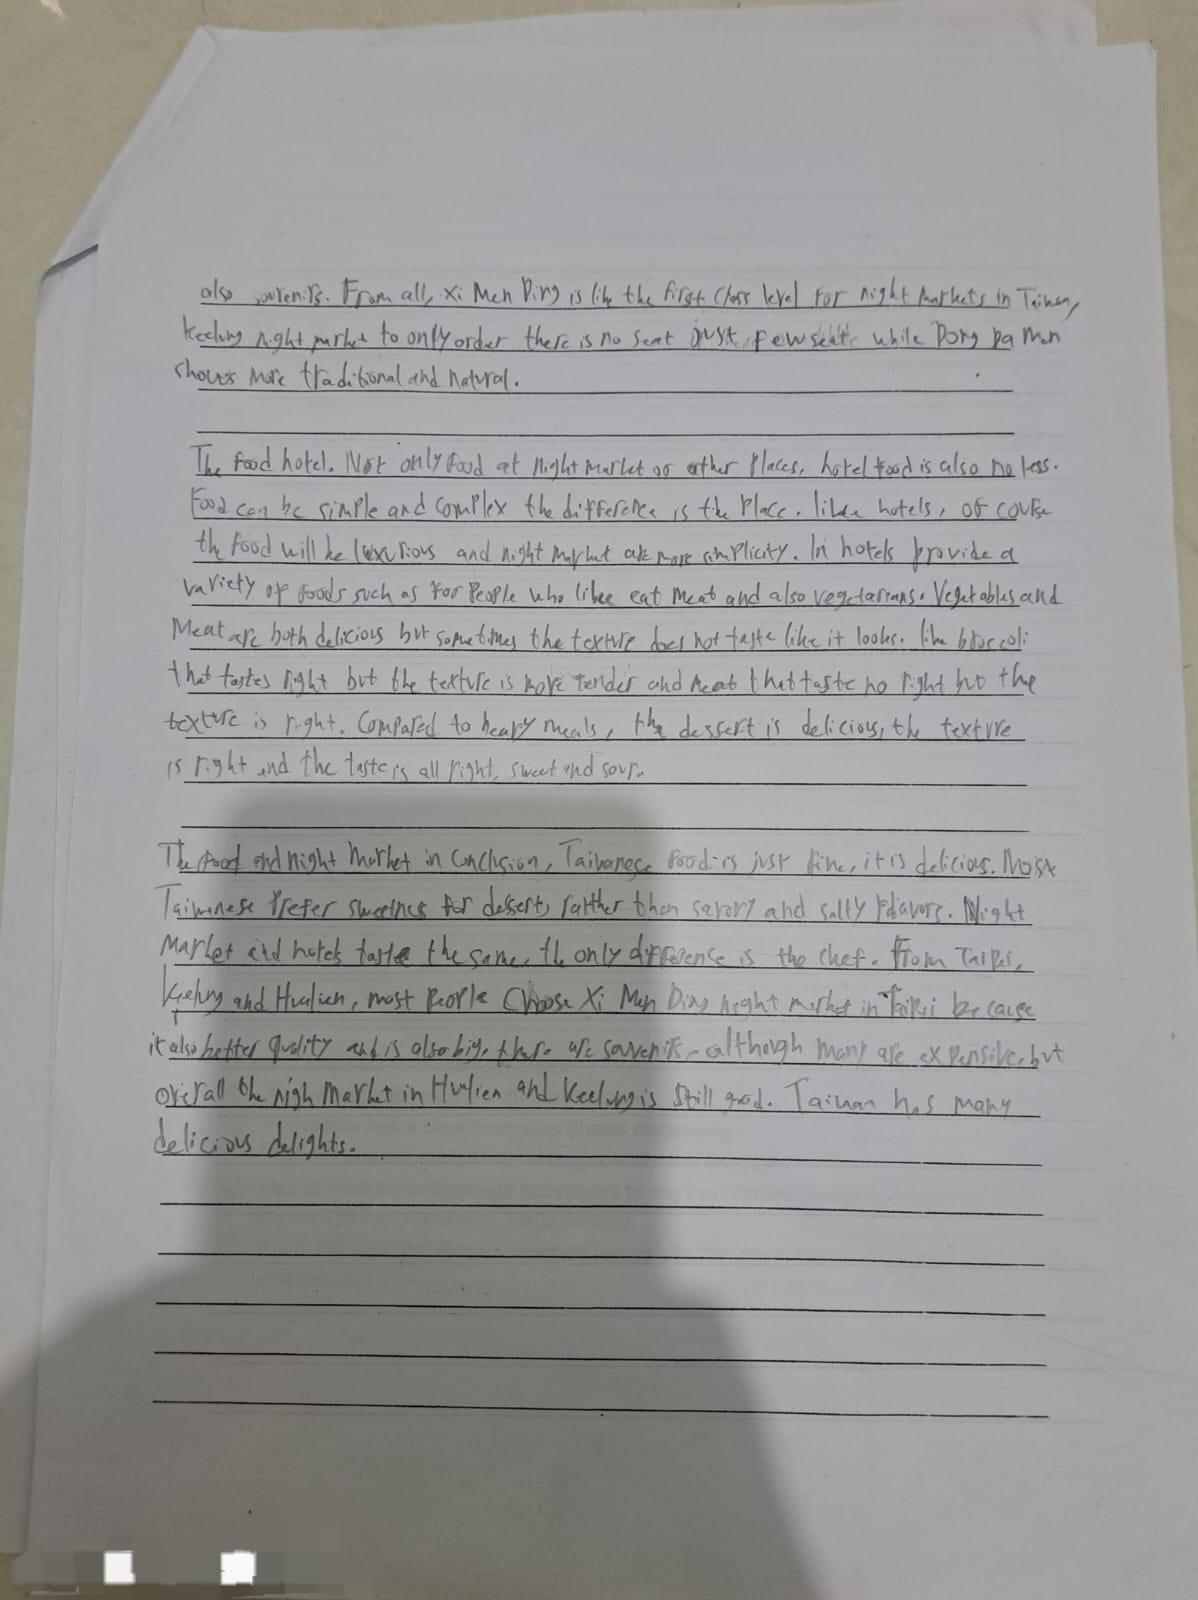 also souvenirs. From all, Xi Men Ding is like the first class level for night markets in Taiwan,
Keelung night market to only order there is no seat just few seat while Dong Da Men
shows more traditional and natural.
The food hotel. Not only food at night market or other places, hotel food is also no less.
Food can be simple and complex the difference is the place. like hotels, of course
the food will be luxurious and night market are more simplicity. In hotels provide a
variety of foods such as for people who like eat meat and also vegetarians. Vegetables and
Meat are both delicious but sometimes the texture does not taste like it looks. like broccoli
that tastes right but the texture is more tender and meat that taste no right but the
texture is right. Compared to heavy meals, the dessert is delicious, the texture
is right and the taste is all right, sweet and sour.
The food and night market in conclusion, Taiwanese food is just fine, it is delicious. Most
Taiwanese prefer sweetness for desserts rather than savory and salty flavors. Night
market and hotels taste the same, the only difference is the chef. From Taipei,
Keelung and Hualien, most people choose Xi Men Ding night market in Taipei because
it also better quality and is also big, there are souvenirs, although many are expensive, but
overall the nigh market in Hualien and Keelung is still good. Taiwan has many
delicious delights.